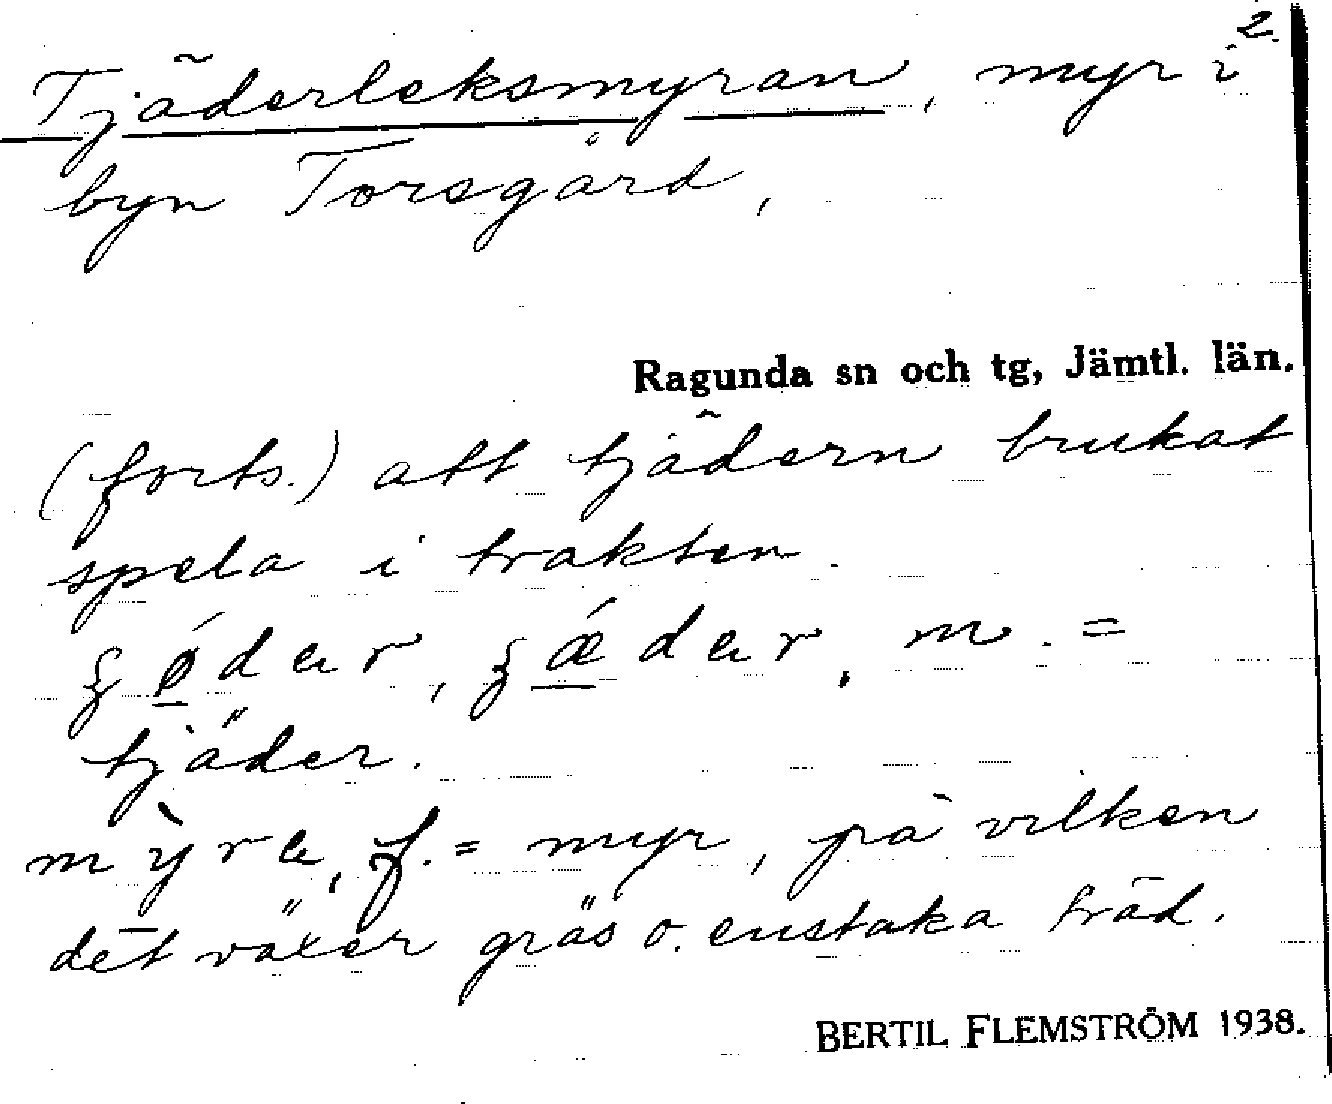 2.
Tjäderleksmyran, myr i
byn Torsgård,
Ragunda sn och tg, Jämtl. län.
(forts.) att tjädern brukat
spela i trakten.
m. =
tjäder.
f. = myr, på vilken
det växer gräs o. enstaka träd.
BERTIL FLEMSTRÖM 1938.